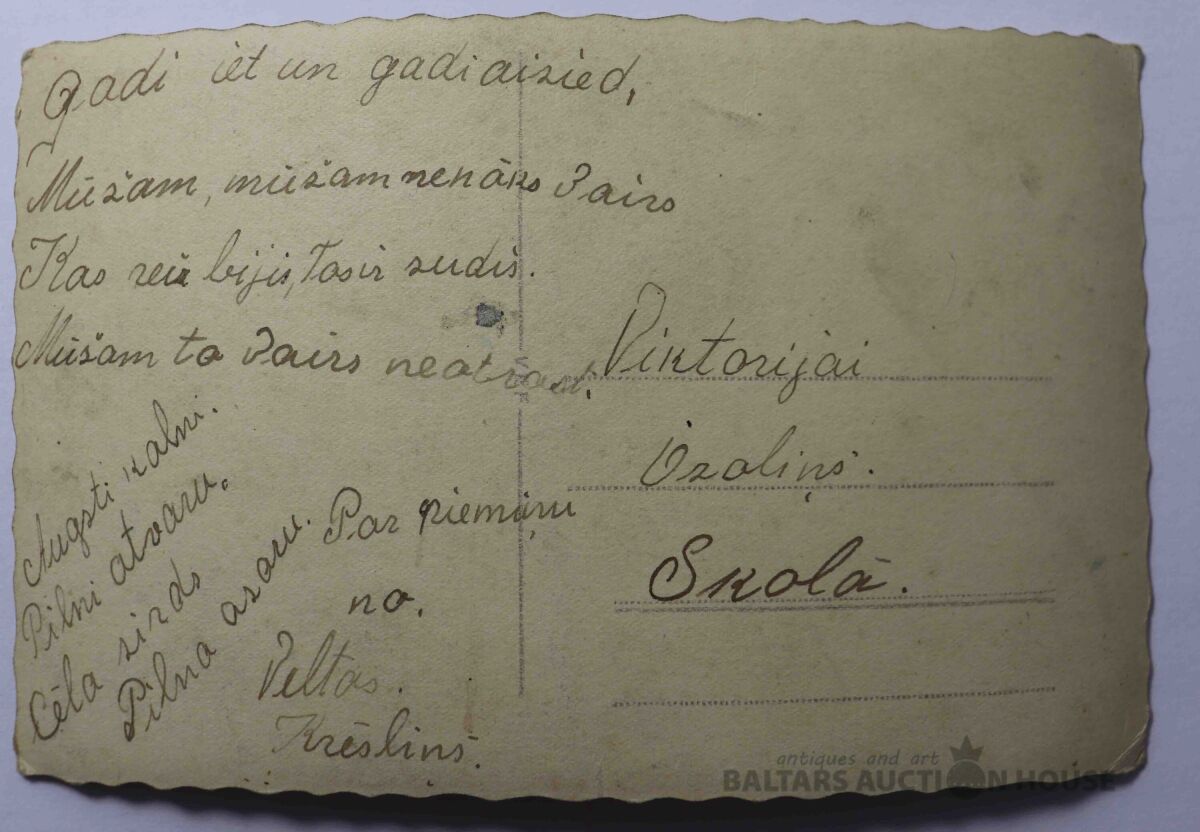 Gadi iet un gadi aizied,
Mūžam, mūžam nenāks vairs
Kas reiz bijis, tas ir zudis.
Mūžam to vairs neatrast.
Augsti kalni.
Pilni atvaru.
Cēla sirds
Pilna asaru.
Par piemiņu
no.
Veltas.
Krēsliņš.
Viktorijai
Ozoliņš.
Skolā.
antiques and art
BALTARS AUCTION HOUSE